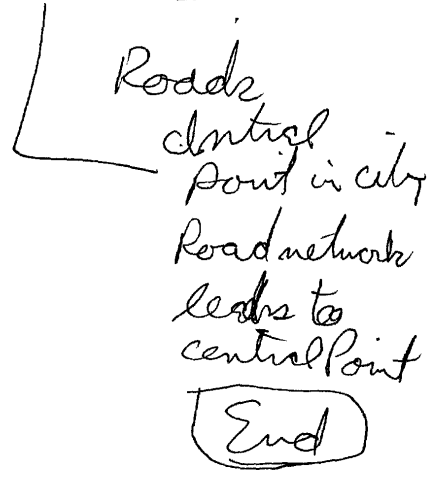 Roads
central
point in city
Road network
leads to
central Point
End